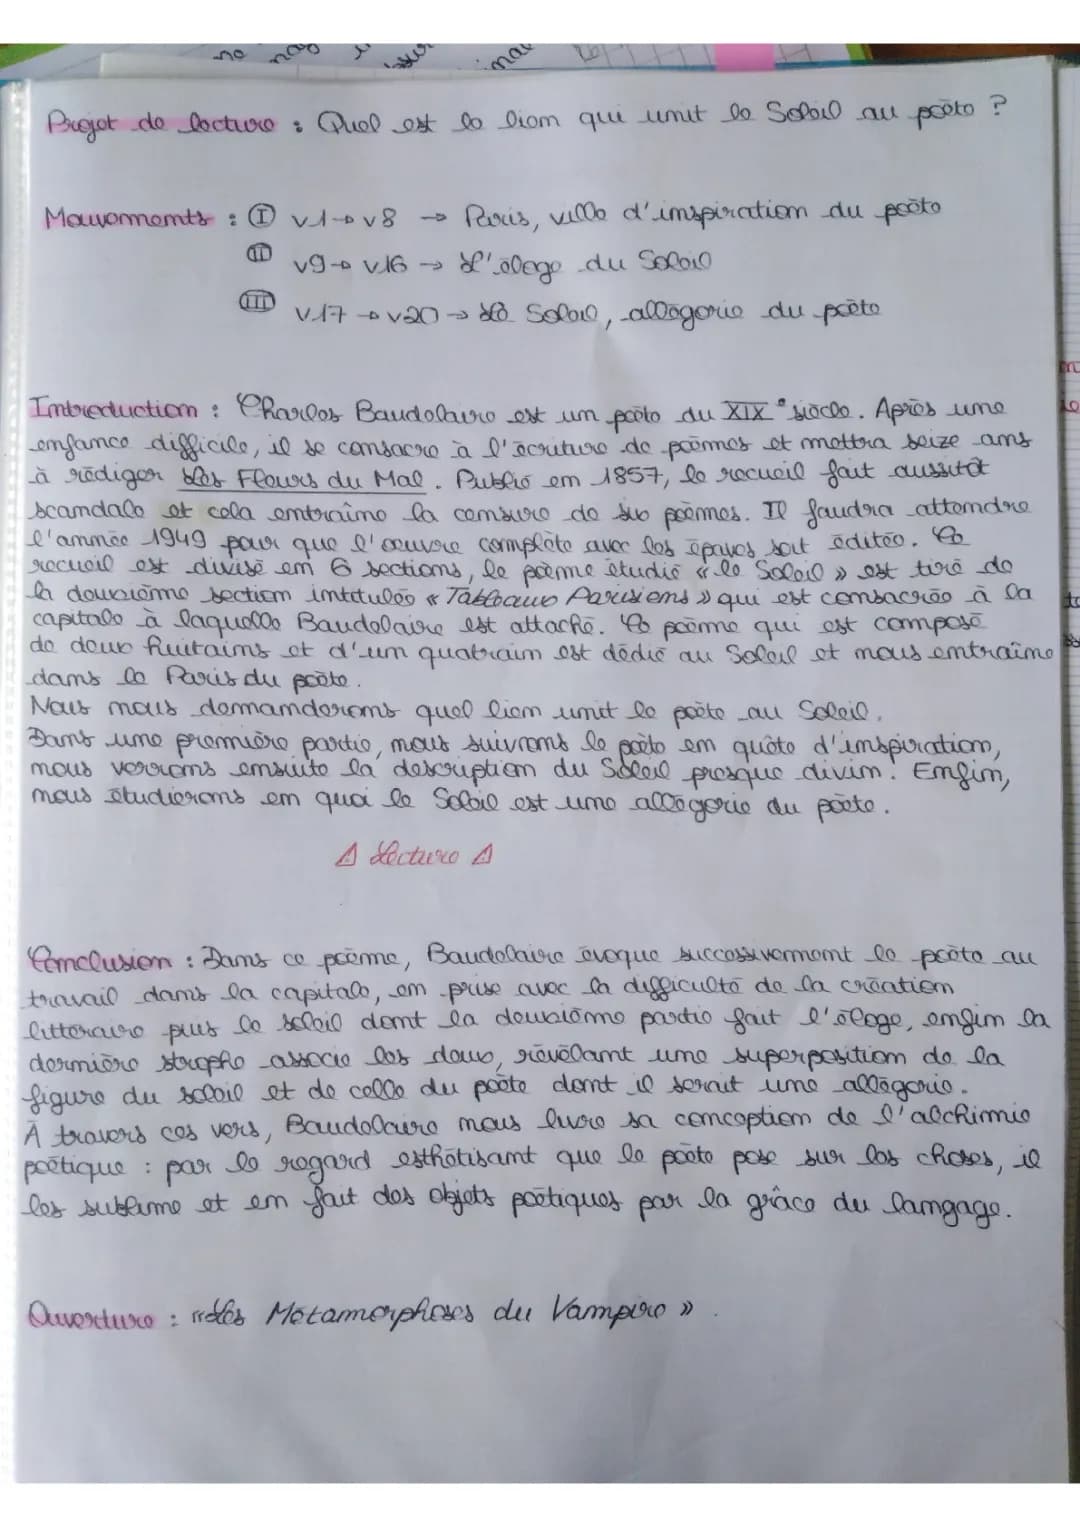 Projet de lecture : Quel est le lien qui unit le Soleil au poète ?
Mouvements : I v1→v8 → Paris, ville d'inspiration du poète
II v9→v16 → L'éloge du Soleil
III v.17→v20→ Le Soleil, allégorie du poète
Introduction : Charles Baudelaire est un poète du XIX° siècle. Après une
enfance difficile, il se consacre à l'écriture de poèmes et mettra seize ans
à rédiger Les Fleurs du Mal. Publié en 1857, le recueil fait aussitôt
scandale et cela entraîne la censure de six poèmes. Il faudra attendre
l'année 1949 pour que l'œuvre complète avec les épaves soit éditée. Ce
recueil est divisé en 6 sections, le poème étudié « le Soleil » est tiré de
la deuxième section intitulée « Tableaux Parisiens » qui est consacrée à la
capitale à laquelle Baudelaire est attaché. Ce poème qui est composé
de deux huitains et d'un quatrain est dédié au Soleil et nous entraîne
dans le Paris du poète.
Nous nous demanderons quel lien unit le poète au Soleil.
Dans une première partie, nous suivrons le poète en quête d'inspiration,
nous verrons ensuite la description du Soleil presque divin. Enfin,
nous étudierons en quoi le Soleil est une allégorie du poète.
⚠ Lecture ⚠
Conclusion : Dans ce poème, Baudelaire évoque successivement le poète au
travail dans la capitale, en prise avec la difficulté de la création
littéraire puis le soleil dont la deuxième partie fait l'éloge, enfin la
dernière strophe associe les deux, révélant une superposition de la
figure du soleil et de celle du poète dont il serait une allégorie.
À travers ces vers, Baudelaire nous livre sa conception de l'alchimie
poétique : par le regard esthétisant que le poète pose sur les choses, il
les sublime et en fait des objets poétiques par la grâce du langage.
Ouverture : « Les Métamorphoses du Vampire ».